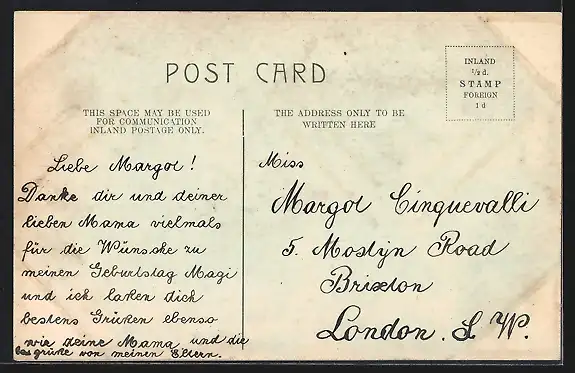 POST CARD
INLAND
½d.
STAMP
FOREIGN
1d
THIS SPACE MAY BE USED
FOR COMMUNICATION
INLAND POSTAGE ONLY.
THE ADDRESS ONLY TO BE
WRITTEN HERE
Liebe Margot!
Danke dir und deiner
lieben Mama vielmals
für die Wünsche zu
meinen Geburtstag Magi
und ich laßen dich
bestens Grüßen ebenso
wie deine Mama und die
grüße von meinen Eltern.
Miss
Margot Cinquevalli
5. Mostyn Road
Brixton
London. S. W.